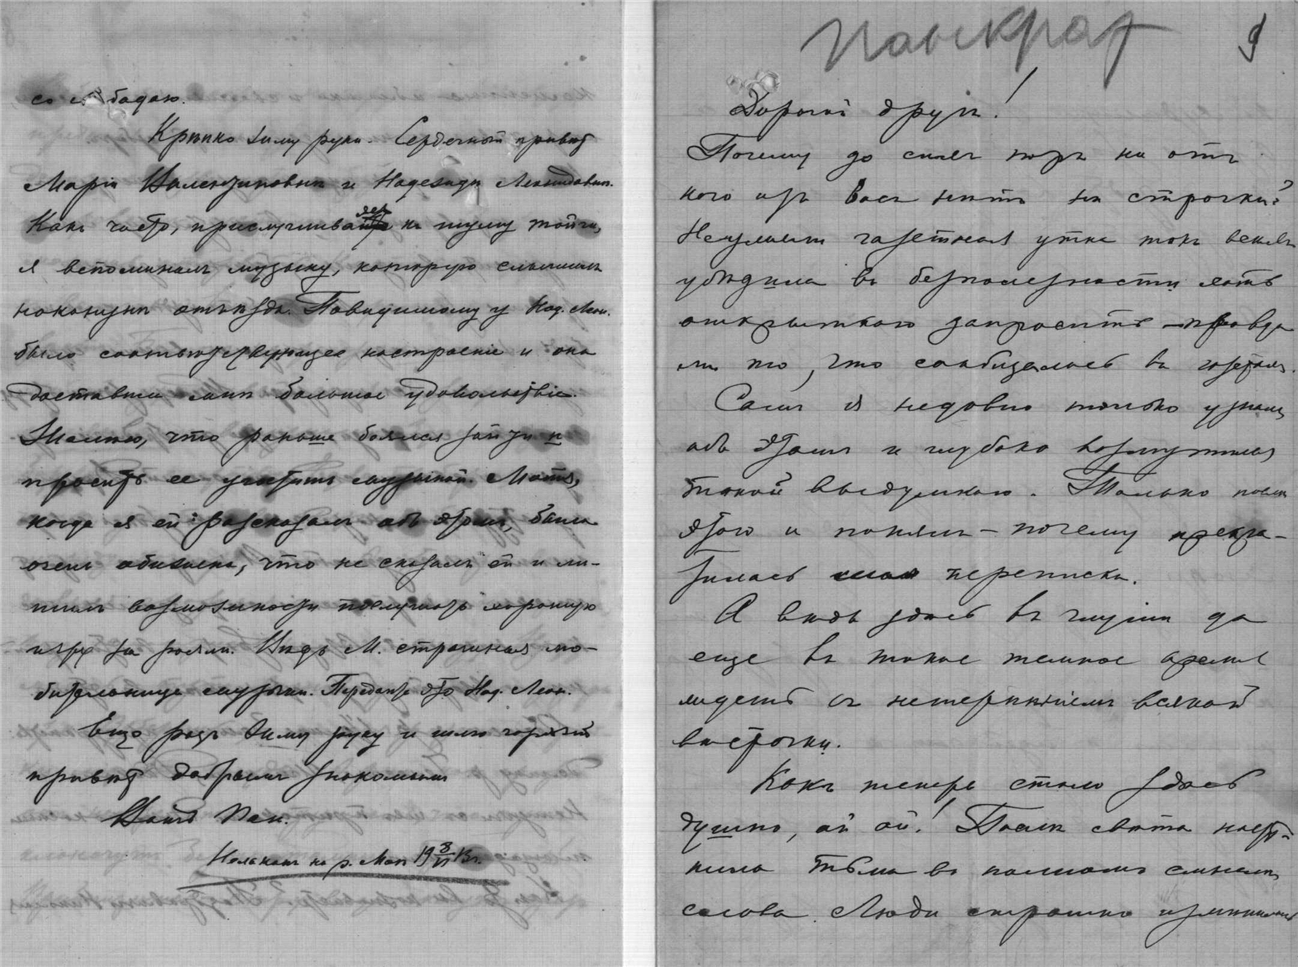 со слободою.
Крѣпко жму руки. Сердечный привѣт
Маріи Валентиновнѣ и Надеждѣ Леонидовнѣ.
Какъ часто, прислушиваясь къ шуму тайги,
я вспоминалъ музыку, которую слышалъ
наканунѣ отъѣзда. Повидимому у Над. Леон.
было соотвѣтствующее настроеніе и она
доставила мнѣ большое удовольствіе.
Жалѣю, что раньше боялся зайти и
просить ее угостить музыкой. Мать,
когда я ей разсказалъ объ этомъ, была
очень обижена, что не сказалъ ей и ли-
шилъ возможности послушать хорошую
игру на рояли. Вѣдь М. страшная лю-
бительница музыки. Передайте это Над. Леон.
Еще разъ жму руку и шлю горячій
привѣт добрымъ знакомымъ
Вашъ Пан.
Нелькан на р. Маѣ 19 3/VI 13 г.
Панкрат
9
Дорогой другъ!
Почему до сихъ поръ ни отъ
кого изъ Васъ нѣтъ ни строчки?
Неужели газетная утка такъ всѣхъ
убѣдила въ безполезности хоть
открыткою запросить – правда
ли то, что сообщалось въ газетахъ.
Самъ я недавно только узналъ
объ этомъ и глубоко возмутился
такой выдумкою. Только послѣ
этого и понялъ – почему прекра-
тилась моя переписка.
А вѣдь здѣсь въ глуши да
еще въ такое темное время
ждешь съ нетерпѣніемъ всякой
вѣсточки.
Какъ теперь стало здѣсь
душно, ай ай! Послѣ свѣта насту-
пила тьма въ полномъ смыслѣ
слова. Люди страшно измѣнились